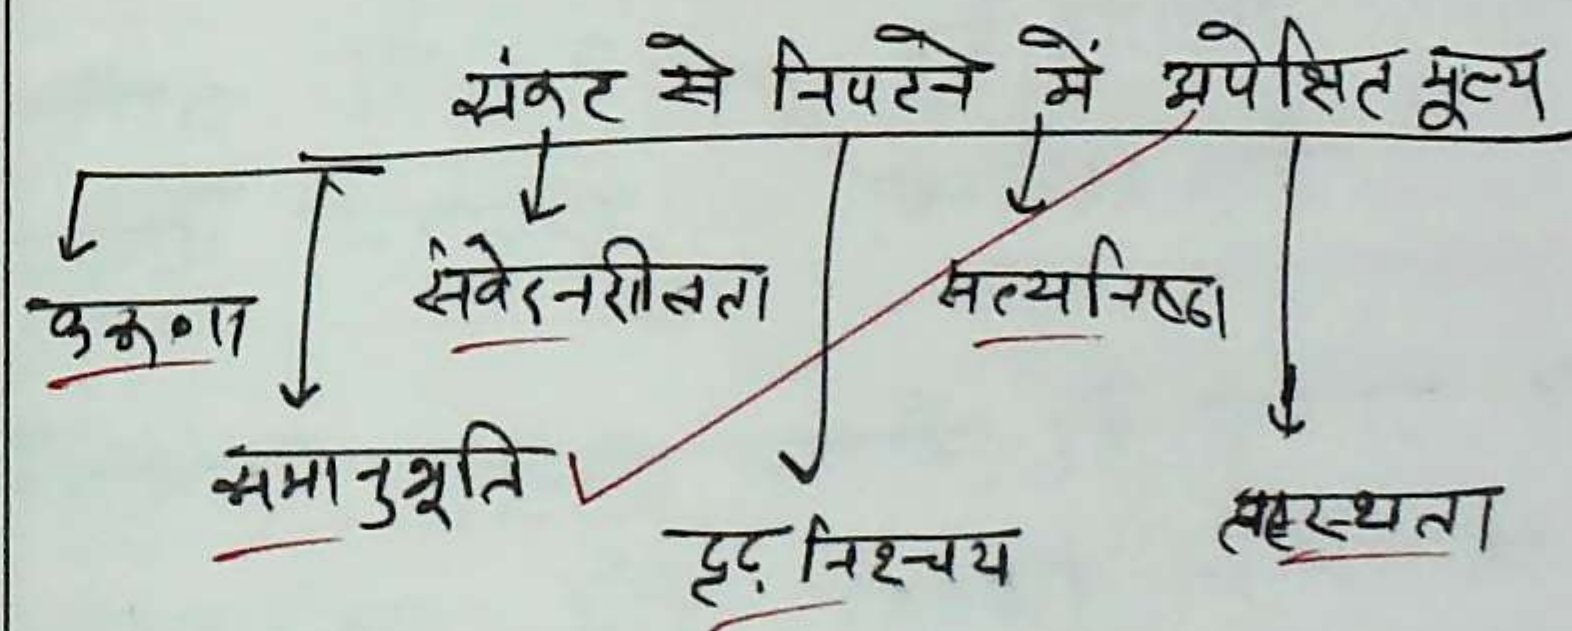 संकट से निपटने में अपेक्षित मूल्य
करूणा
संवेदनशीलता
सत्यनिष्ठा
समानुभूति
दृढ़ निश्चय
तटस्थता